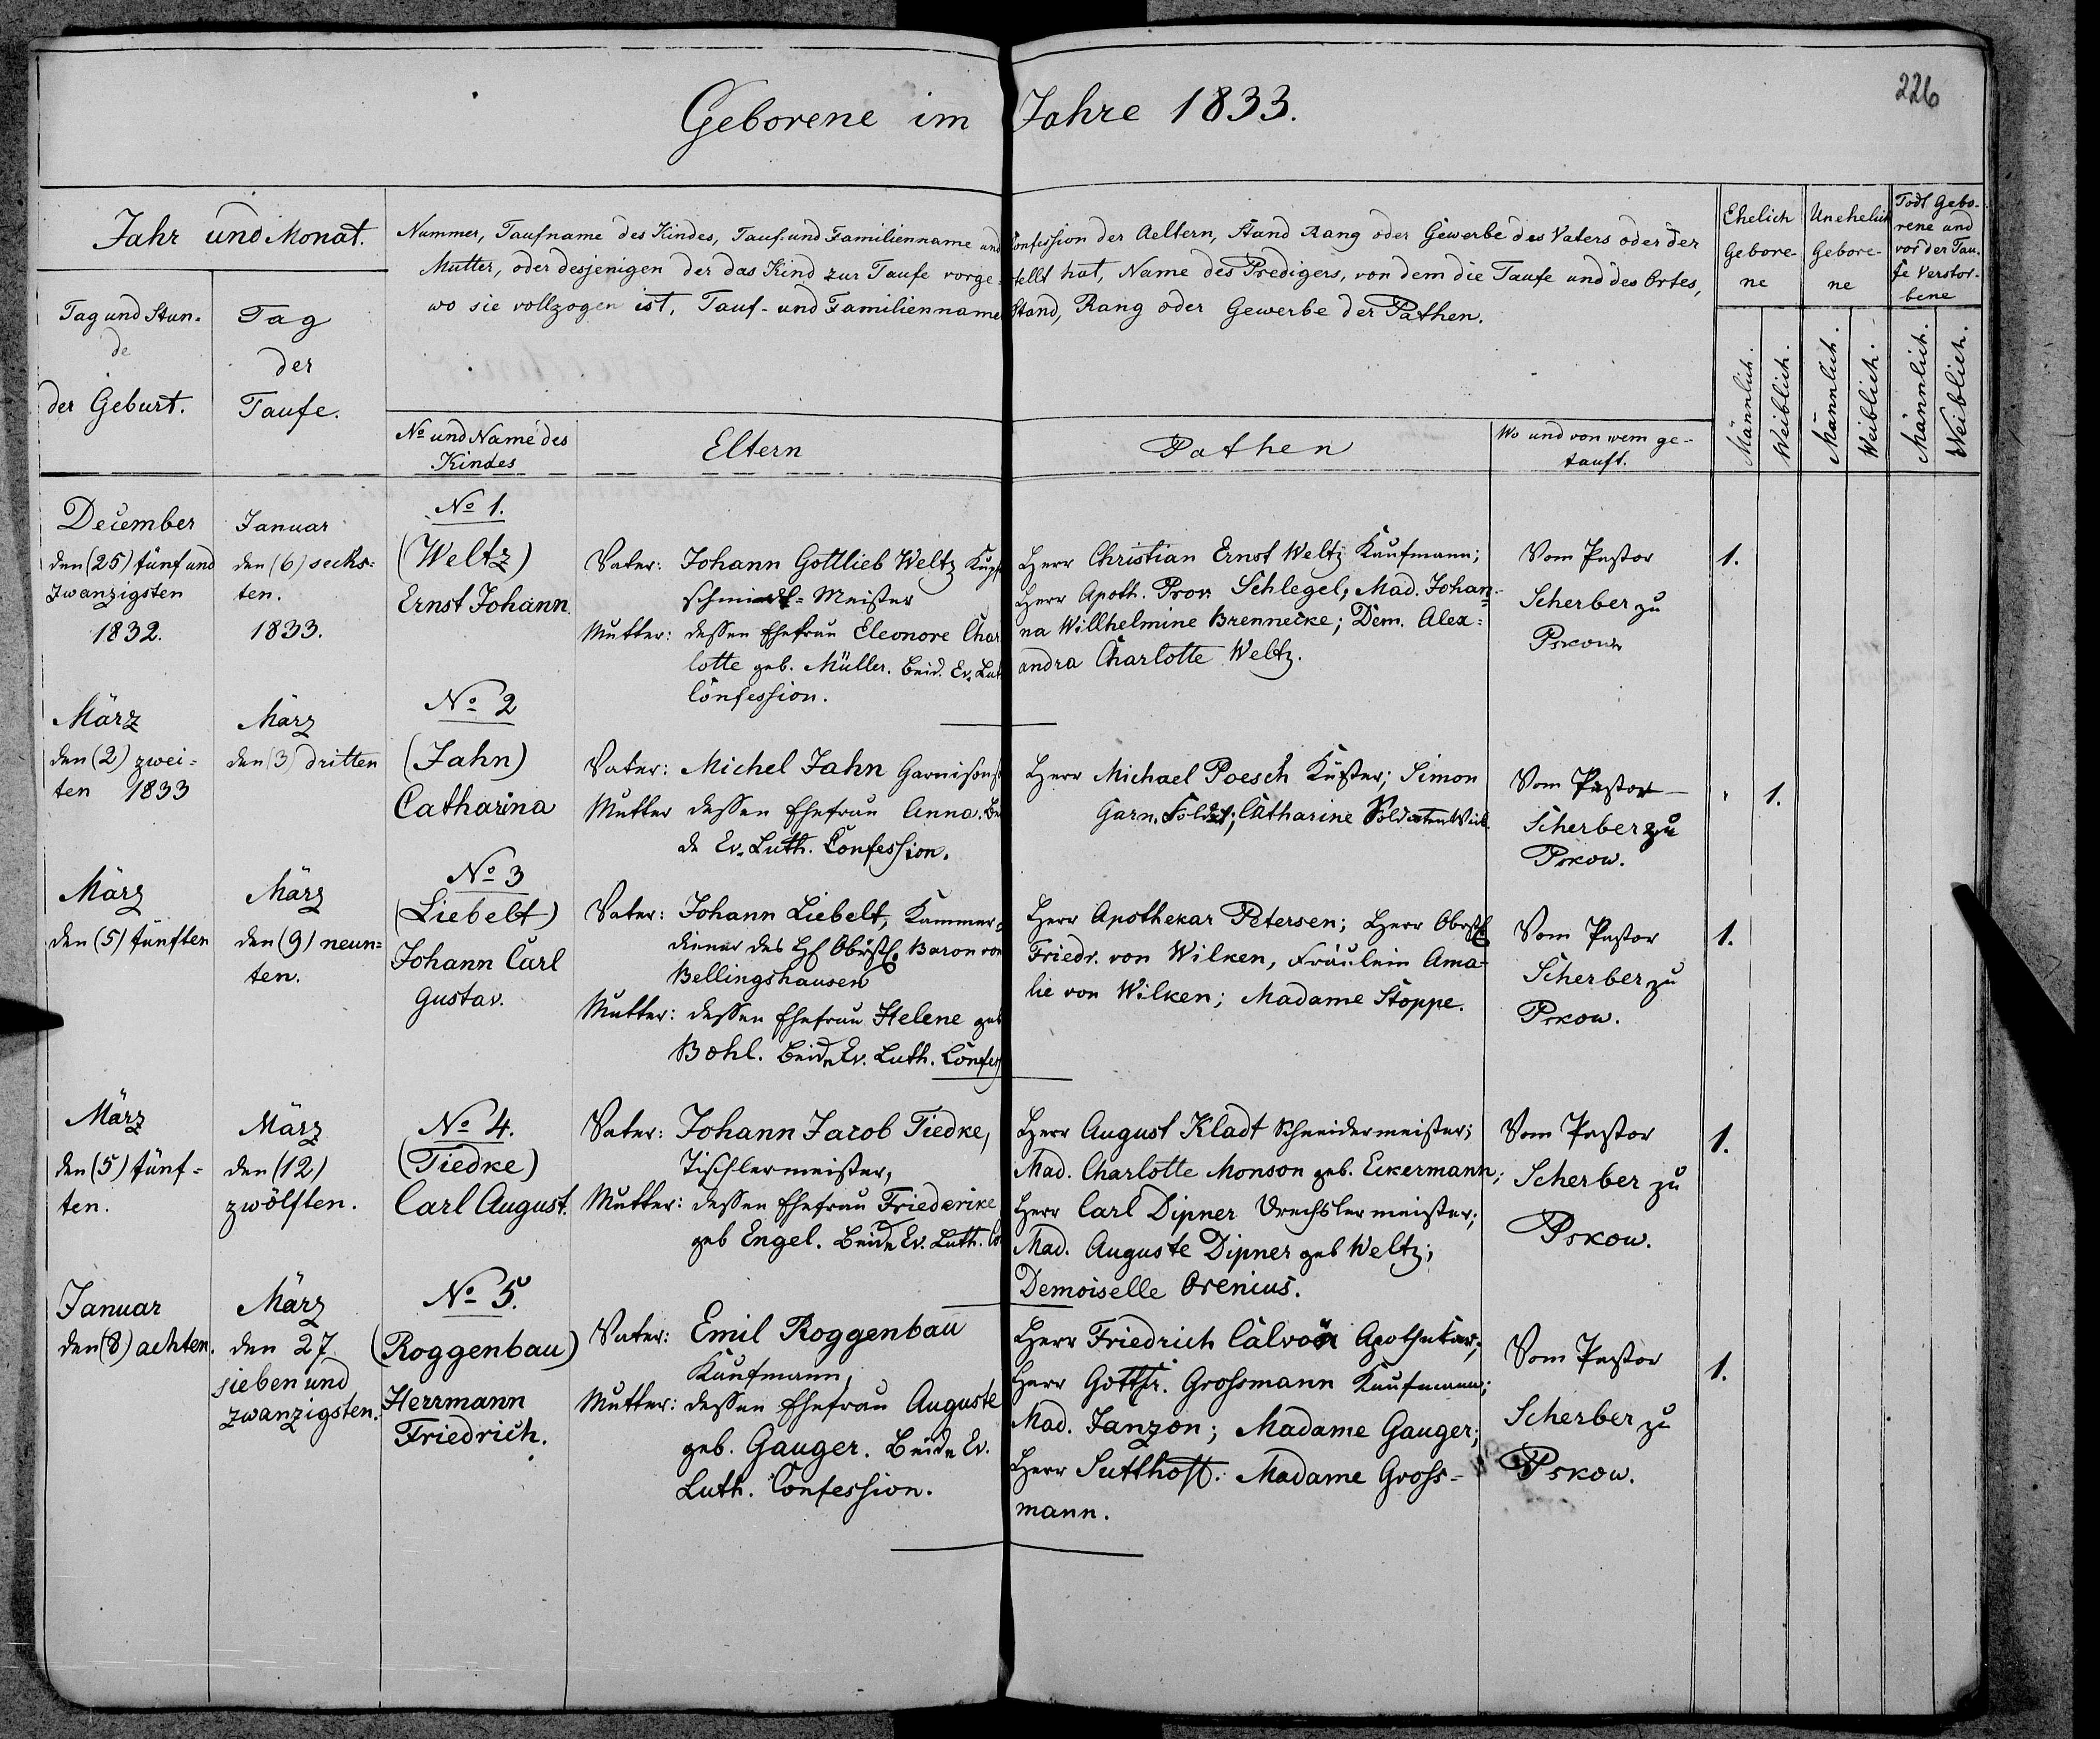 226
Geborene im Jahre 1833.
Jahr und Monat.
Tag und Stun-
de
der Geburt.
Tag
der
Taufe.
Nummer, Taufname des Kindes, Tauf- und Familienname und Confession der Aeltern, Stand Rang oder Gewerbe des Vaters oder der
Mutter, oder desjenigen der das Kind zur Taufe vorge- stellt hat, Name des Predigers, von dem die Taufe und des Ortes,
wo sie vollzogen ist, Tauf- und Familienname Stand, Rang oder Gewerbe der Pathen.
No und Name des
Kindes
Eltern
Pathen
Wo und von wem ge-
tauft.
Ehelich
Gebore-
ne
Unehelich
Gebore-
ne
Todt Gebo-
rene und
vor der Tau-
fe Verstor-
bene
Männlich.
Weiblich.
Männlich.
Weiblich.
Männlich.
Weiblich.
December
den (25) fünf und
zwanzigsten
1832.
Januar
den (6) sechs-
ten.
1833.
No 1.
(Weltz)
Ernst Johann.
Vater: Johann Gottlieb Weltz Kupf
schmiede-Meister
Mutter: dessen Ehefrau Eleonore Char
lotte geb. Müller. Beid. Ev. Lut
Confession.
Herr Christian Ernst Weltz Kaufmann;
Herr Apoth. Prov. Schlegel; Mad. Johan-
na Willhelmine Brennecke; Dem. Alex-
andra Charlotte Weltz.
Vom Pastor
Scherber zu
Pskow
1.
März
den (2) zwei-
ten 1833
März
den (3) dritten
No 2
(Jahn)
Catharina
Vater: Michel Jahn Garnisons
Mutter dessen Ehefrau Anna. Be
de Ev. Luth. Confession.
Herr Michael Poesch Küster; Simon
Garn. Soldat; Catharine Soldatenweib.
Vom Pastor
Scherber zu
Pskow.
1.
März
den (5) fünften
März
den (9) neun-
ten.
No 3
(Liebelt)
Johann Carl
Gustav.
Vater: Johann Liebelt, Kammer-
diener des H. Obristl. Baron von
Bellingshausen
Mutter: dessen Ehefrau Helene geb
Bohl. Beide Ev. Luth. Confes
Herr Apothekar Petersen; Herr Obrstl
Friedr. von Wilken, Fräulein Ama-
lie von Wilken; Madame Stoppe.
Vom Pastor
Scherber zu
Pskow.
1.
März
den (5) fünf-
ten.
März
den (12)
zwölften.
No 4.
(Tiedke)
Carl August.
Vater: Johann Jacob Tiedke,
Tischlermeister,
Mutter: dessen Ehefrau Friederike
geb Engel. Beide Ev. Luth. Co
Herr August Kladt Schneidermeister;
Mad. Charlotte Monson geb. Eckermann;
Herr Carl Dipner Drechslermeister;
Mad. Auguste Dipner geb Weltz;
Demoiselle Orenius.
Vom Pastor
Scherber zu
Pskow.
1.
Januar
den (8) achten.
März
den 27
sieben und
zwanzigsten.
No 5.
(Roggenbau)
Herrmann
Friedrich.
Vater: Emil Roggenbau
Kaufmann,
Mutter: dessen Ehefrau Auguste
geb. Gauger. Beide Ev.
Luth. Confession.
Herr Friedrich Calvör Apothekar;
Herr Gottfr. Grossmann Kaufmann;
Mad. Janzon; Madame Gauger;
Herr Sutthoff. Madame Gross-
mann.
Vom Pastor
Scherber zu
Pskow.
1.